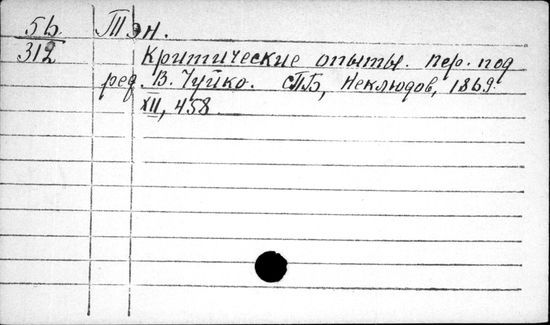 5б. Тэн.
312 Критические опыты. пер. под
ред. В. Чуйко. СПБ, Неклюдов, 1869.
XII, 458